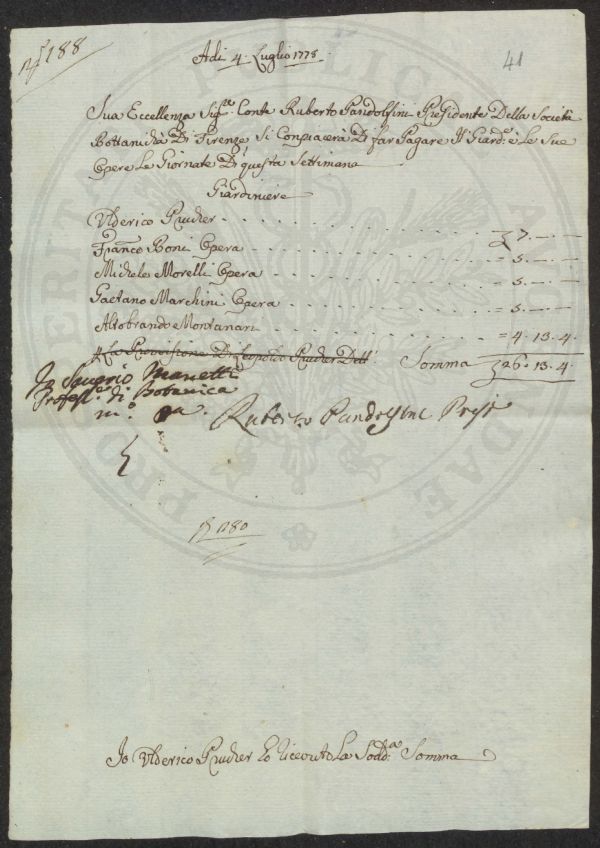 N° 188
41
Adi 4. Luglio 1775.
Sua Eccellenza Sig.re Conte Ruberto Pandolfini Presidente Della Società
Bottanicha Di Firenze Si Conpiacerà Di far Pagare Il Giard.e e Le Sue
Opere Le Giornate Di questa Settimana
Giardiniere
Ulderico Prucher . . . . . . . . . . 7. — . —
Franc.o Boni Opera . . . . . . . . . . = 5. — . —
Michele Morelli Opera . . . . . . . . . . = 5. — . —
Gaetano Marchini Opera . . . . . . . . . . = 5. — . —
Altobrando Montanari . . . . . . . . . . = 4. 13. 4.
La Provisione Di Leopoldo Prucher Dett.
Somma 26. 13. 4
Io Saverio Manetti
Profess.e di Botanica
m.o pa.
Ruberto Pandolfini Presid
1280
Io Ulderico Prucher ho riceuto La Sodd.a Somma
PRO VERITATE